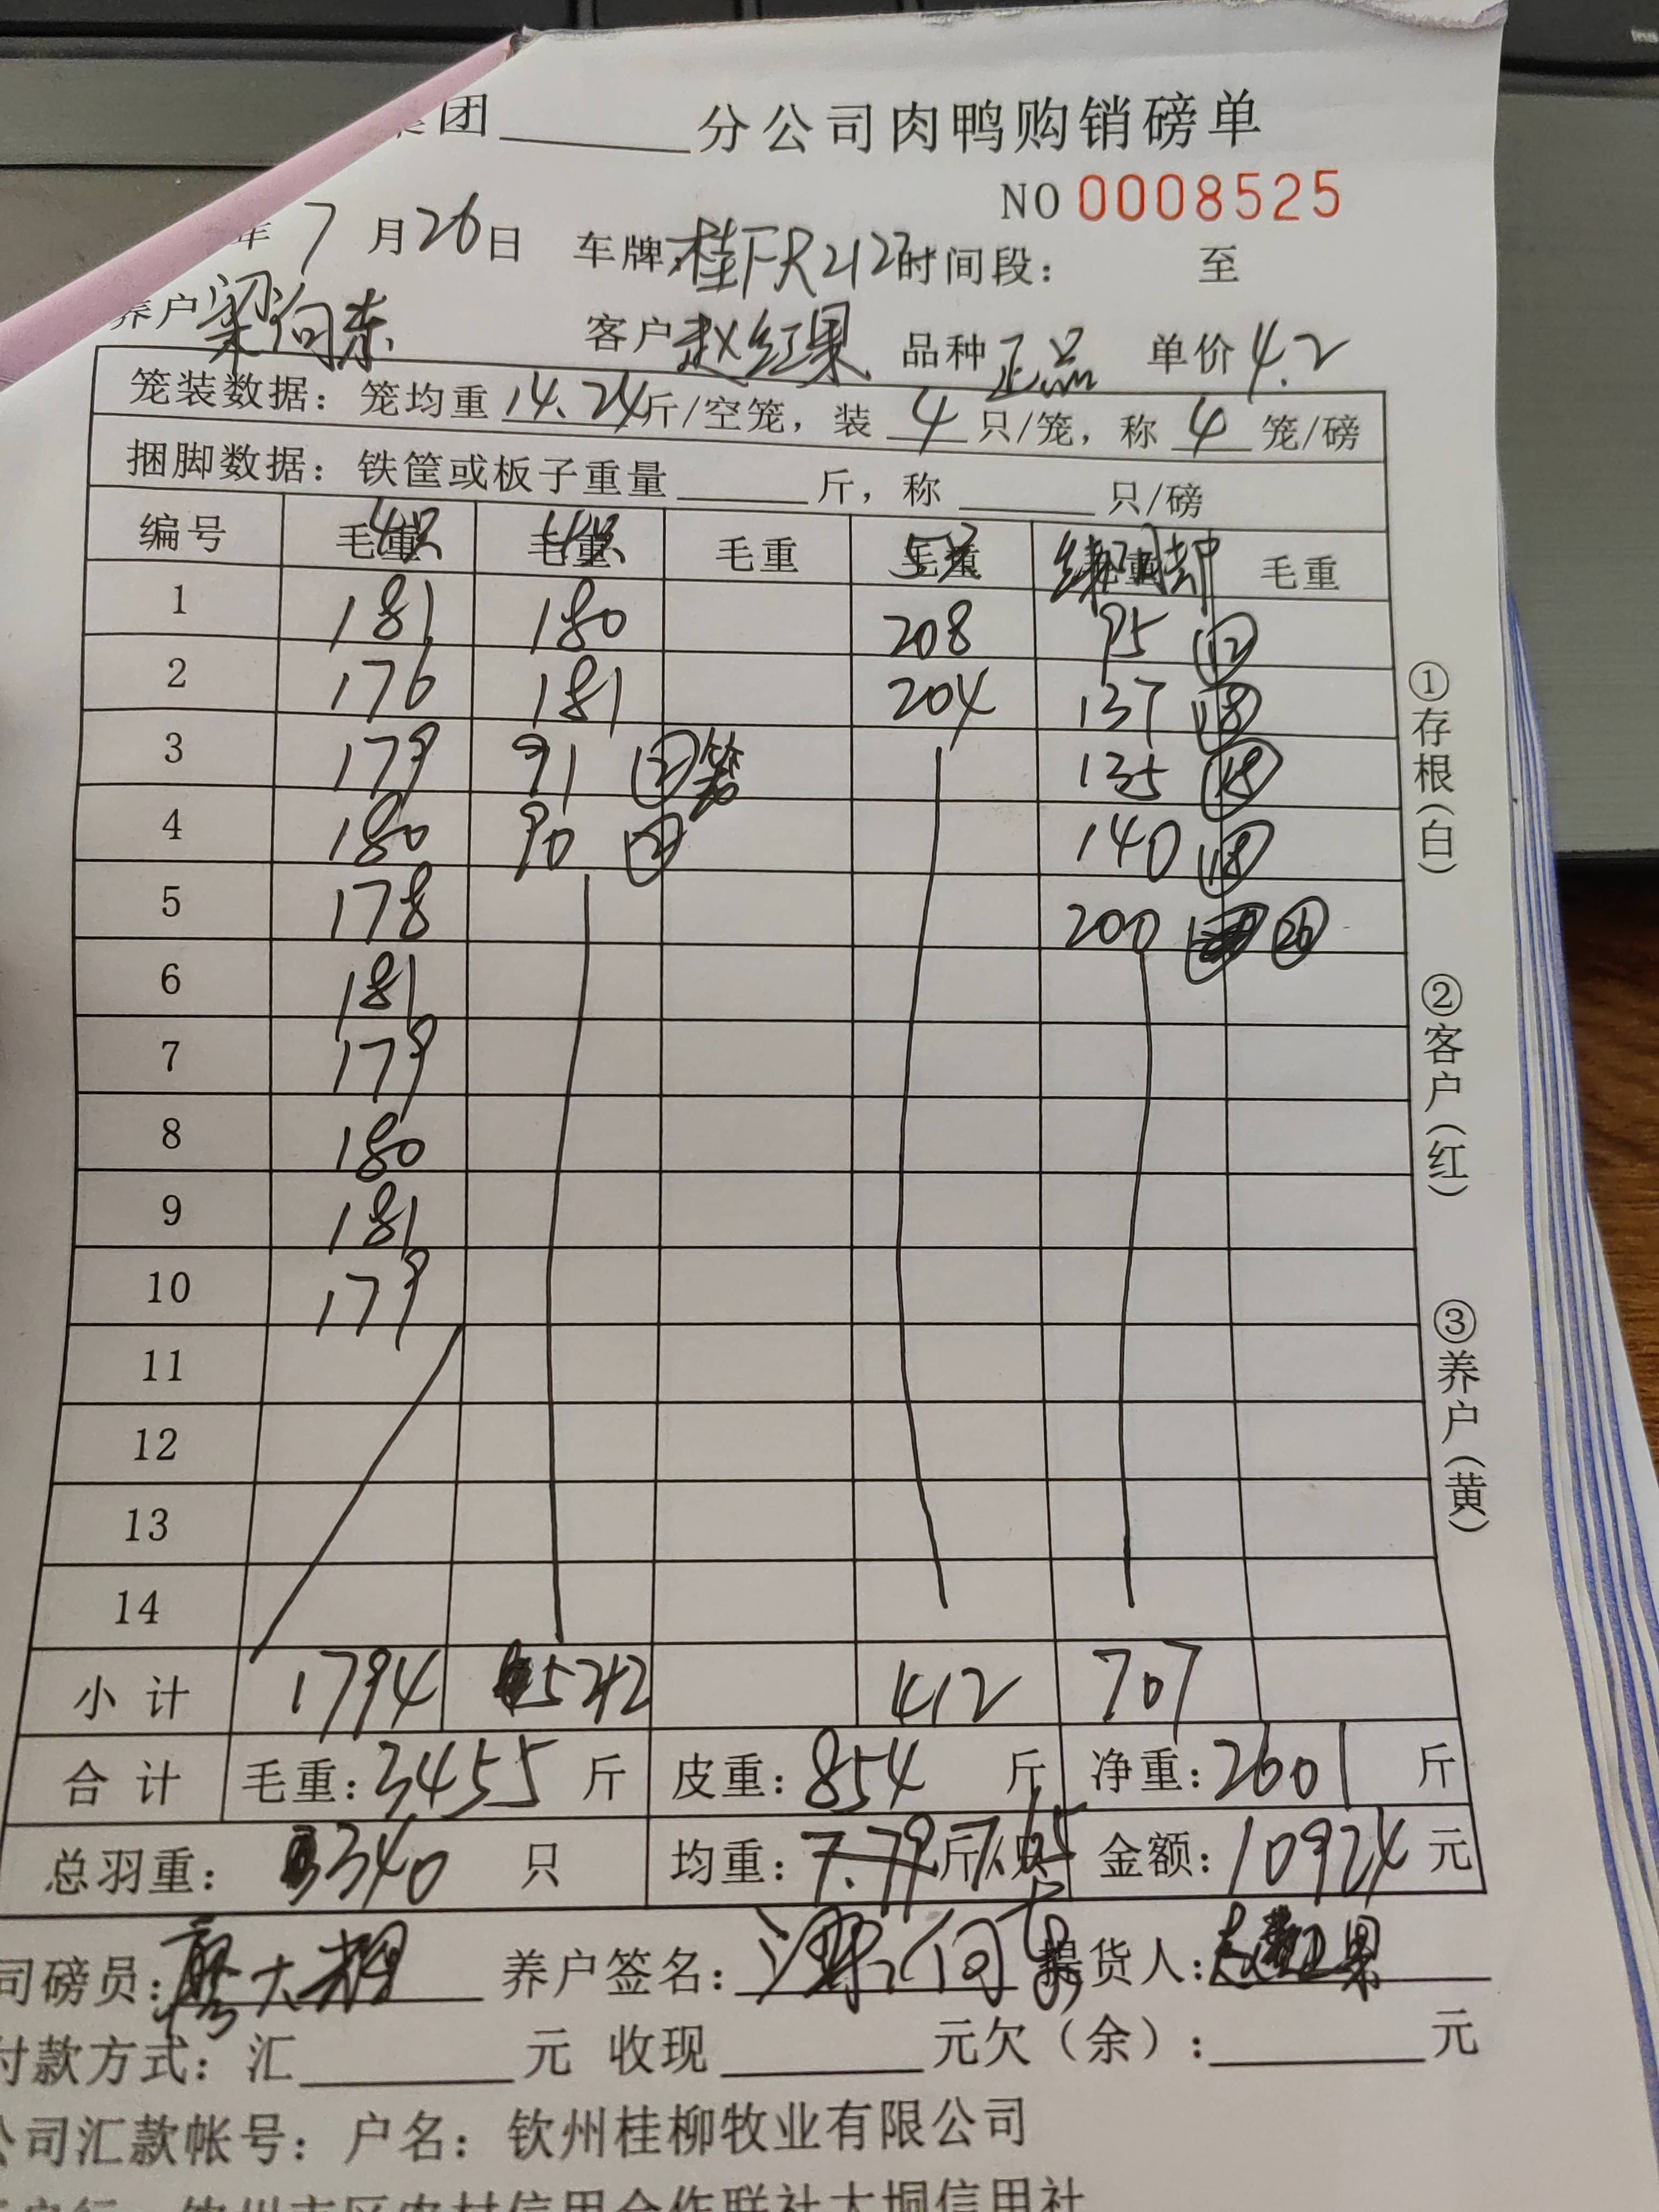 团______分公司肉鸭购销磅单
NO 0008525
年 7 月 26 日 车牌:桂FR212 时间段: 至
养户 梁向东 客户 赵红果 品种 正品 单价 4.2
笼装数据: 笼均重 14.24 斤/空笼, 装 4 只/笼, 称 4 笼/磅
捆脚数据: 铁筐或板子重量______斤, 称______只/磅
编号 毛重 4只 毛重 4只 毛重 毛重 5只 毛重 绑脚 毛重
1 181 180 208 95 ⑫
2 176 181 204 137 ⑱
3 179 91 ② 笼 135 ⑱
4 180 90 ② 140 ⑱
5 178 200 ㉖
6 181
7 179
8 180
9 181
10 179
11
12
13
14
小计 1794 542 412 707
合计 毛重: 3455 斤 皮重: 854 斤 净重: 2601 斤
总羽重: 340 只 均重: 7.79 斤/只 7.65 金额: 10924 元
司磅员: 廖大 养户签名: 梁向东 提货人: 赵红果
付款方式: 汇______元 收现______元欠(余):______元
公司汇款帐号: 户名: 钦州桂柳牧业有限公司
钦州市区农村信用合作联社大垌信用社
①存根(白)
②客户(红)
③养户(黄)